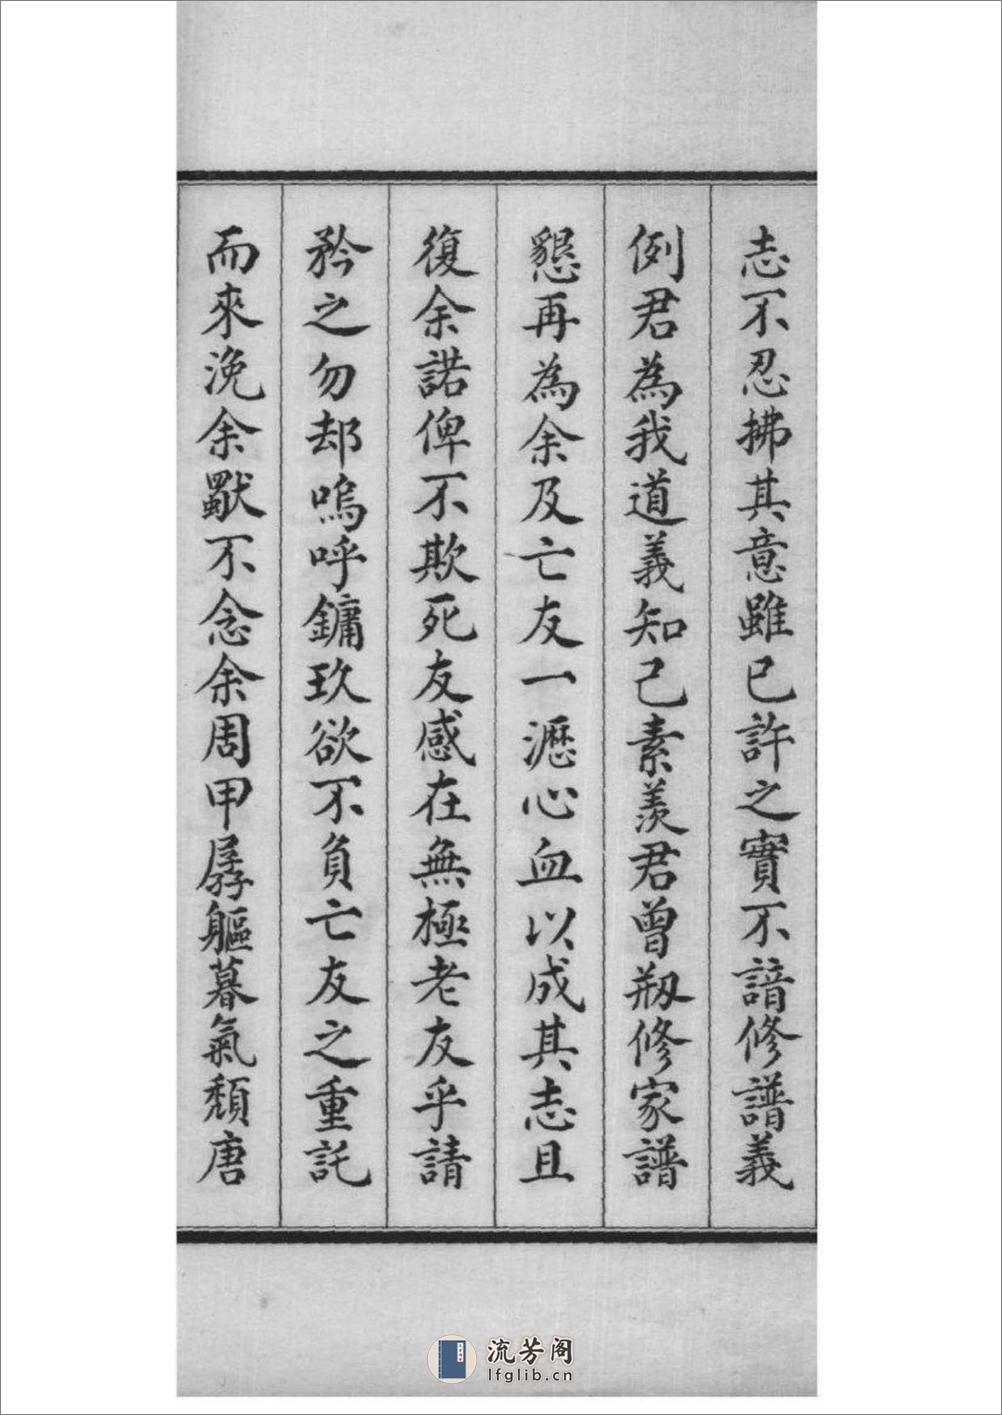 志不忍拂其意雖已許之實不諳修譜義
例君為我道義知己素羨君曾剏修家譜
懇再為余及亡友一瀝心血以成其志且
復余諾俾不欺死友感在無極老友乎請
矜之勿却嗚呼鏞玖欲不負亡友之重託
而來浼余獸不念余周甲孱軀暮氣頹唐
流芳阁
lfglib.cn